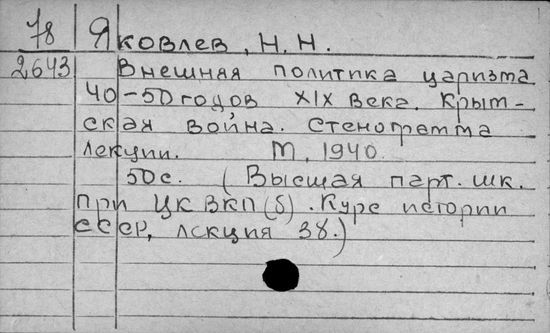 78 Яковлев, Н. Н.
2643 Внешняя политика царизма
40-50 годов XIX века. Крым-
ская война. Стенограмма
лекции. М., 1940.
50 с. (Высшая парт. шк.
при ЦК ВКП(б). Курс истории
СССР, лекция 38.)